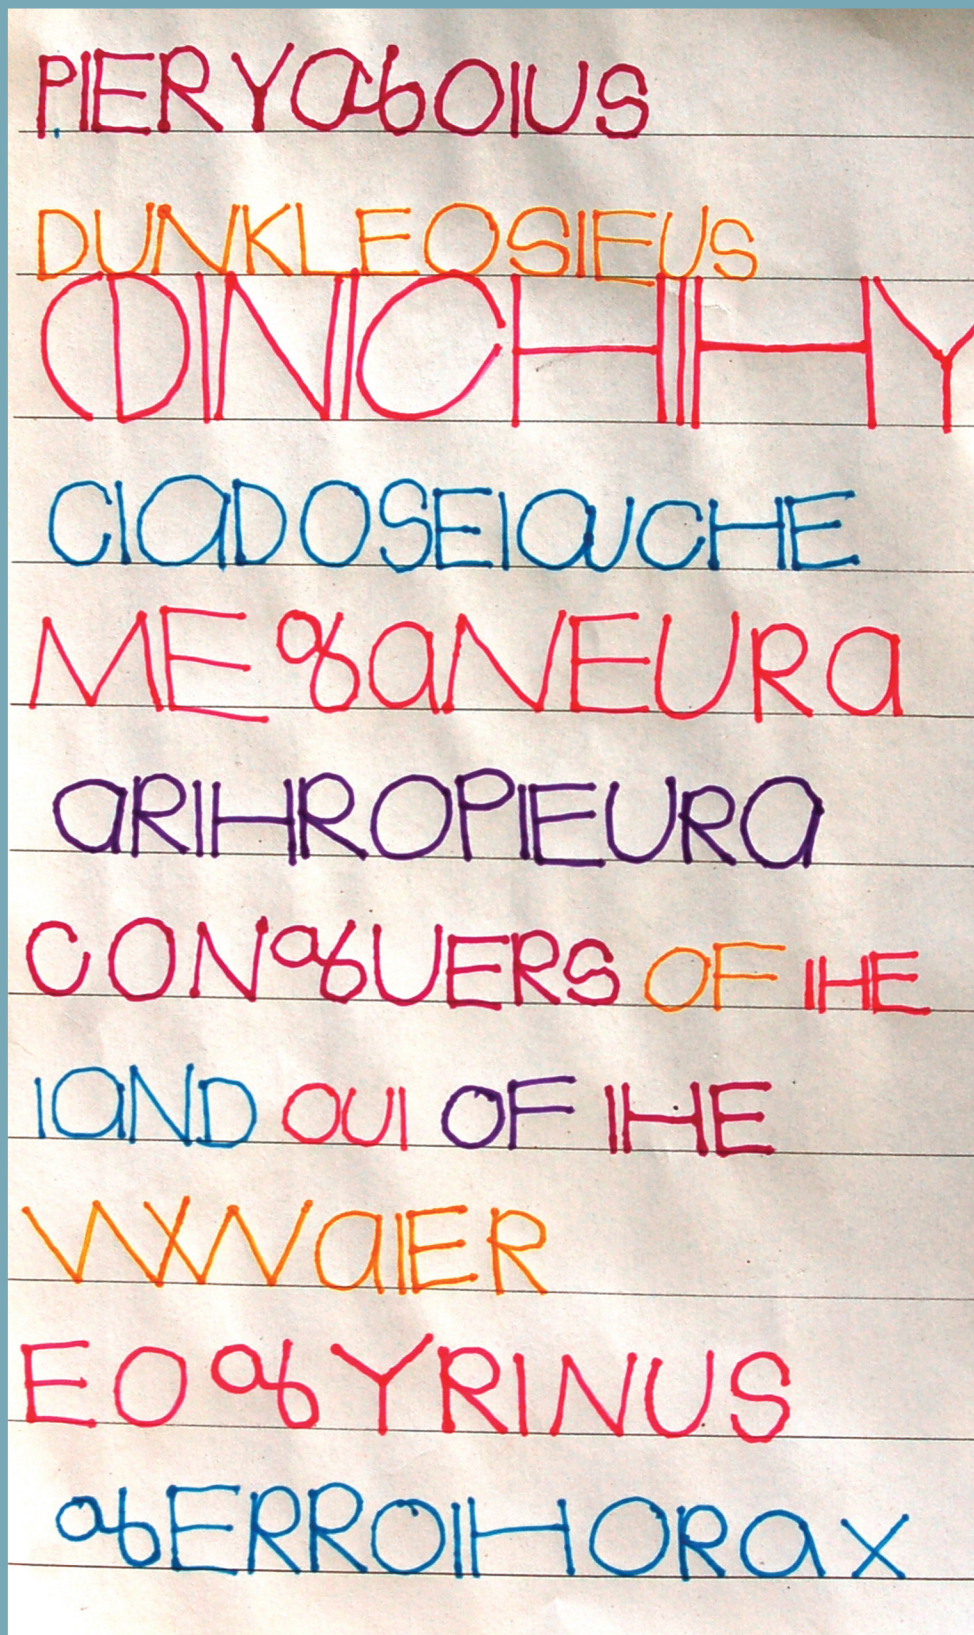 PIERYGOIUS
DUNKLEOSIEUS
DINICHIHY
CIADOSEIAUCHE
MEGANEURA
ARIHROPIEURA
CONGUERS OF IHE
IAND OUI OF IHE
WAIER
EOGYRINUS
GERROIHORAX